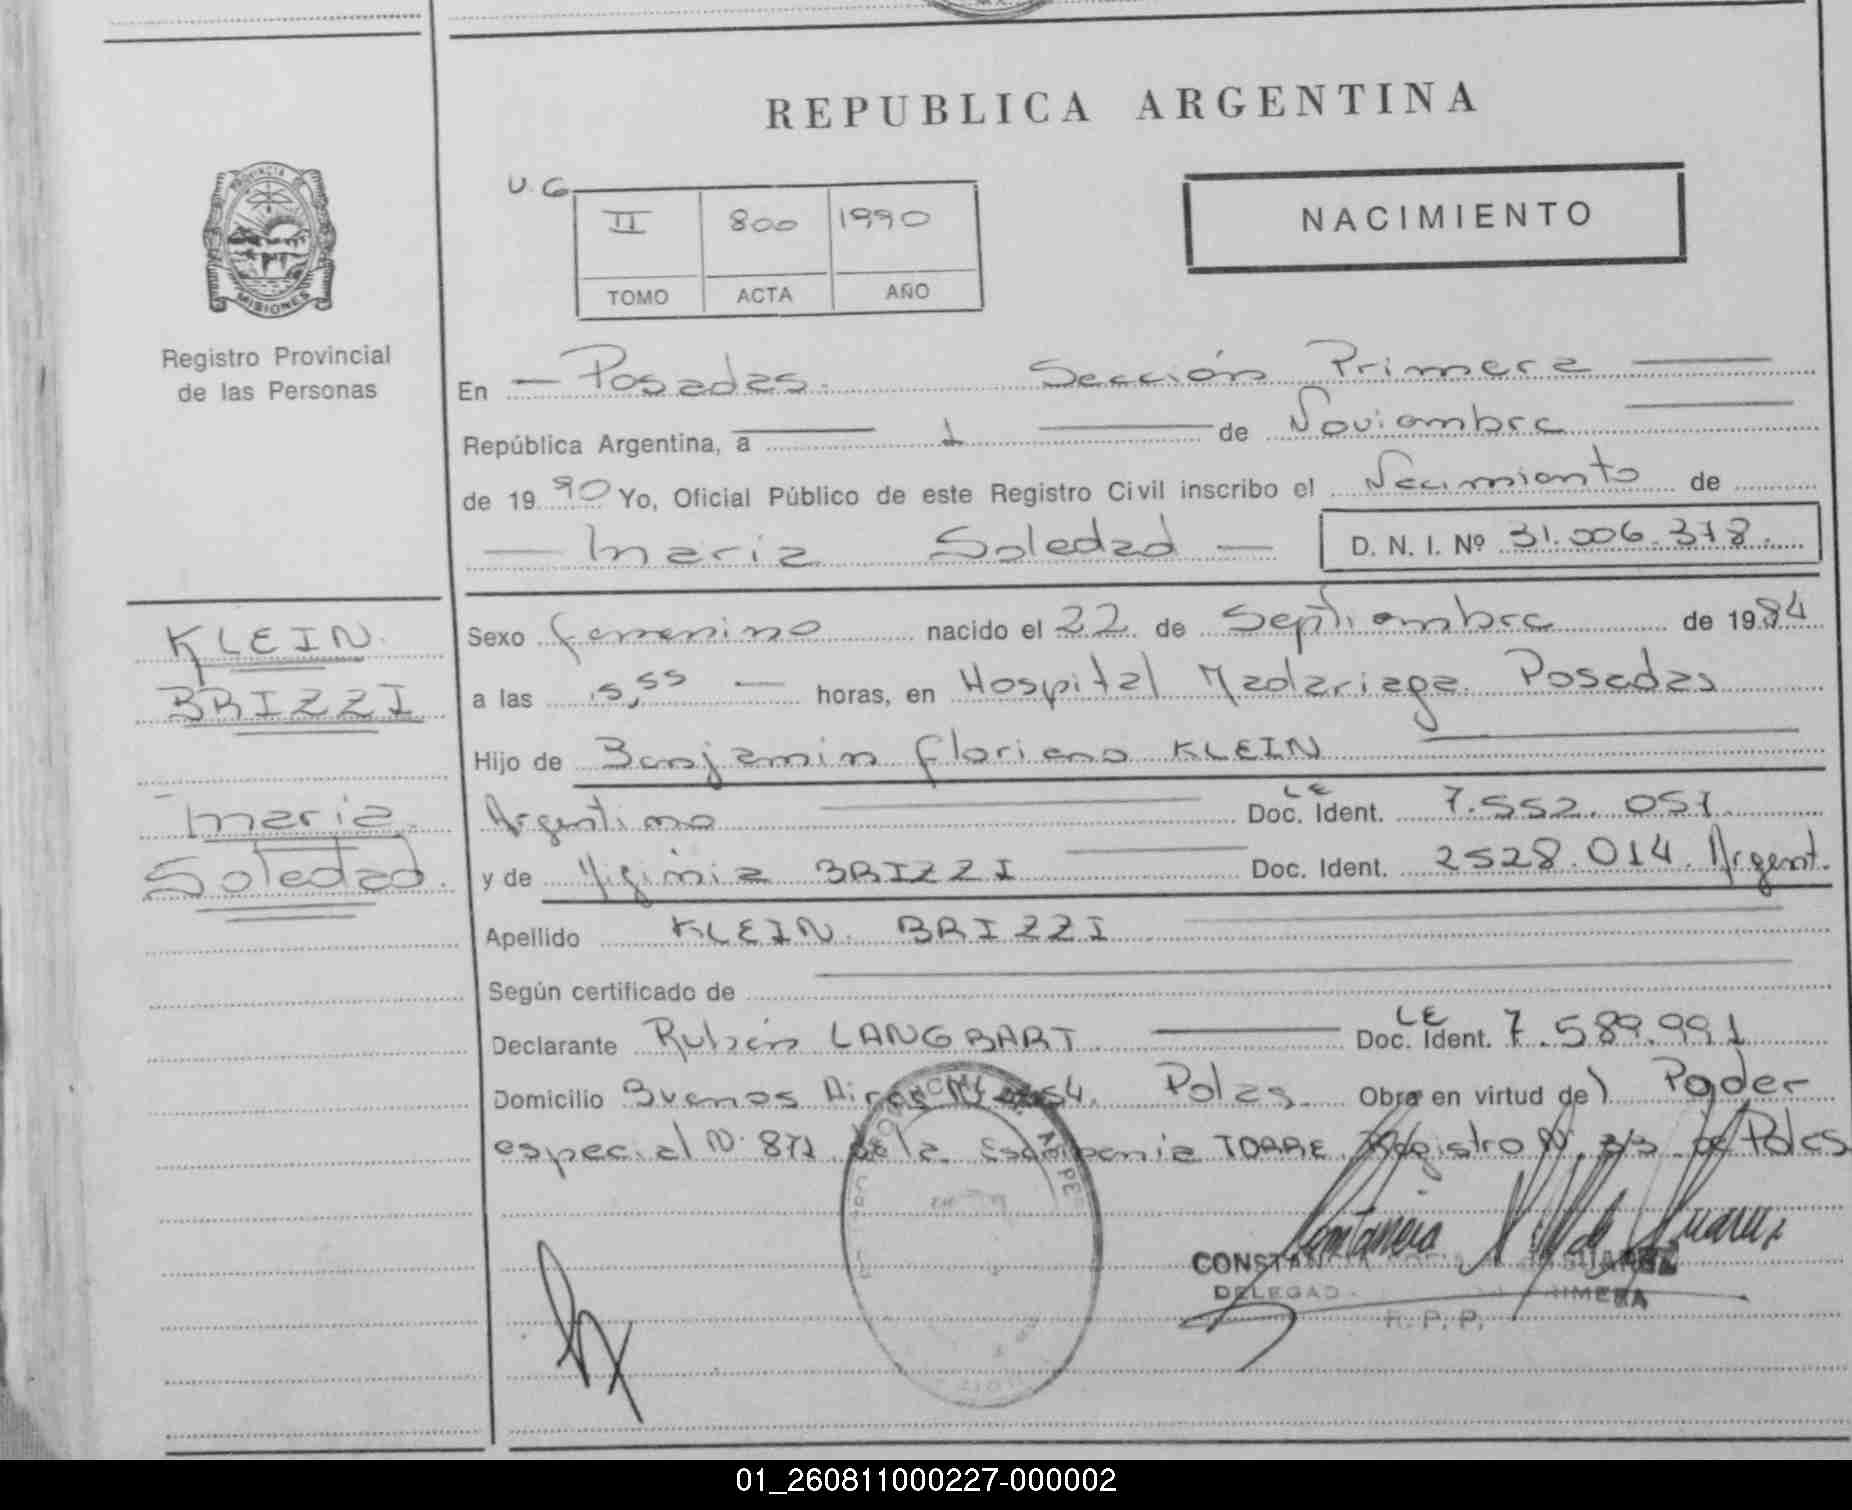 REPUBLICA ARGENTINA
PROVINCIA DE
MISIONES
Registro Provincial
de las Personas
U. G
II 800 1990
TOMO ACTA AÑO
NACIMIENTO
En Posadas. Sección Primera
República Argentina, a 1 de Noviembre
de 19 90 Yo, Oficial Público de este Registro Civil inscribo el Nacimiento de
Maria Soledad D. N. I. Nº 31.006.378.
KLEIN
BRIZZI
Maria
Soledad.
Sexo femenino nacido el 22 de Septiembre de 19 84
a las 5,55 horas, en Hospital Madariaga Posadas
Hijo de Benjamin Floriano KLEIN
Argentino Doc. Ident. LE 7.552.051
y de Higinia BRIZZI Doc. Ident. 2528.014. Argent.
Apellido KLEIN BRIZZI
Según certificado de
Declarante Rubén LANGBART Doc. Ident. LE 7.589.991
Domicilio Buenos Aires Pdas. Obra en virtud de Poder
especial Nº 871 de la Escribania TORRE, Registro Nº de Pdas
CONSTAN SUAREZ
DELEGAD PRIMERA
R. P. P.
01_260811000227-000002